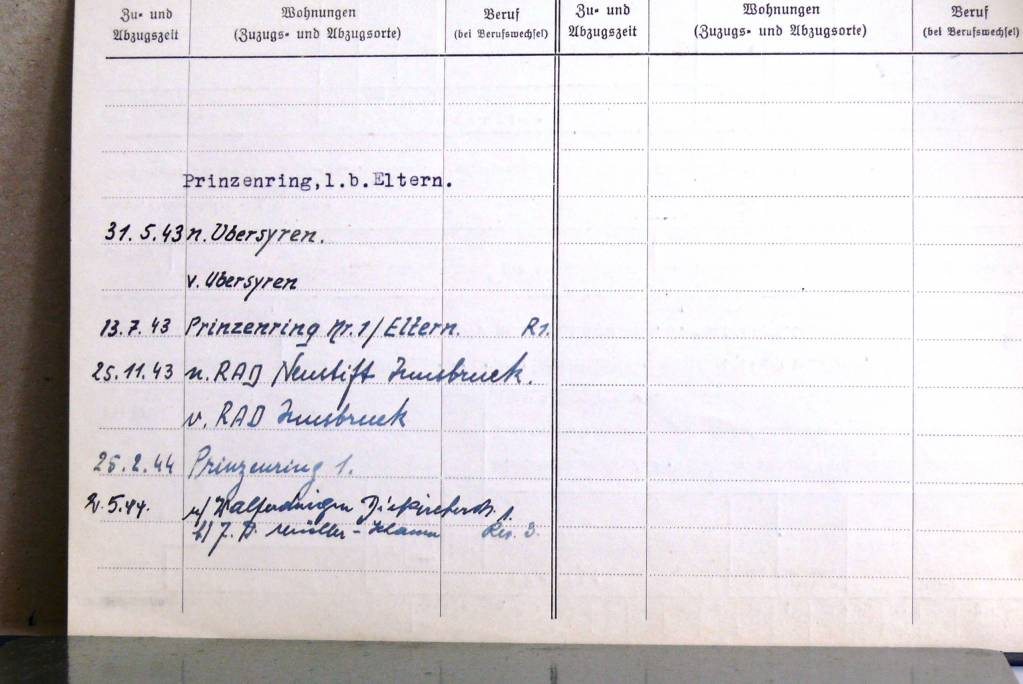 Zu- und Abzugszeit
Wohnungen (Zuzugs- und Abzugsorte)
Beruf (bei Berufswechsel)
Zu- und Abzugszeit
Wohnungen (Zuzugs- und Abzugsorte)
Beruf (bei Berufswechsel)
Prinzenring,l.b.Eltern.
31. 5. 43 n. Übersyren.
v. Übersyren
13. 7. 43 Prinzenring Nr. 1 / Eltern. R1.
25. 11. 43 n. RAD Neustift Innsbruck.
v. RAD Innsbruck
25. 2. 44 Prinzenring 1.
2. 5. 44. n/ Walferdingen Diekircherstr. 1.
b/ J. P. Müller - Klamm Res. 3.